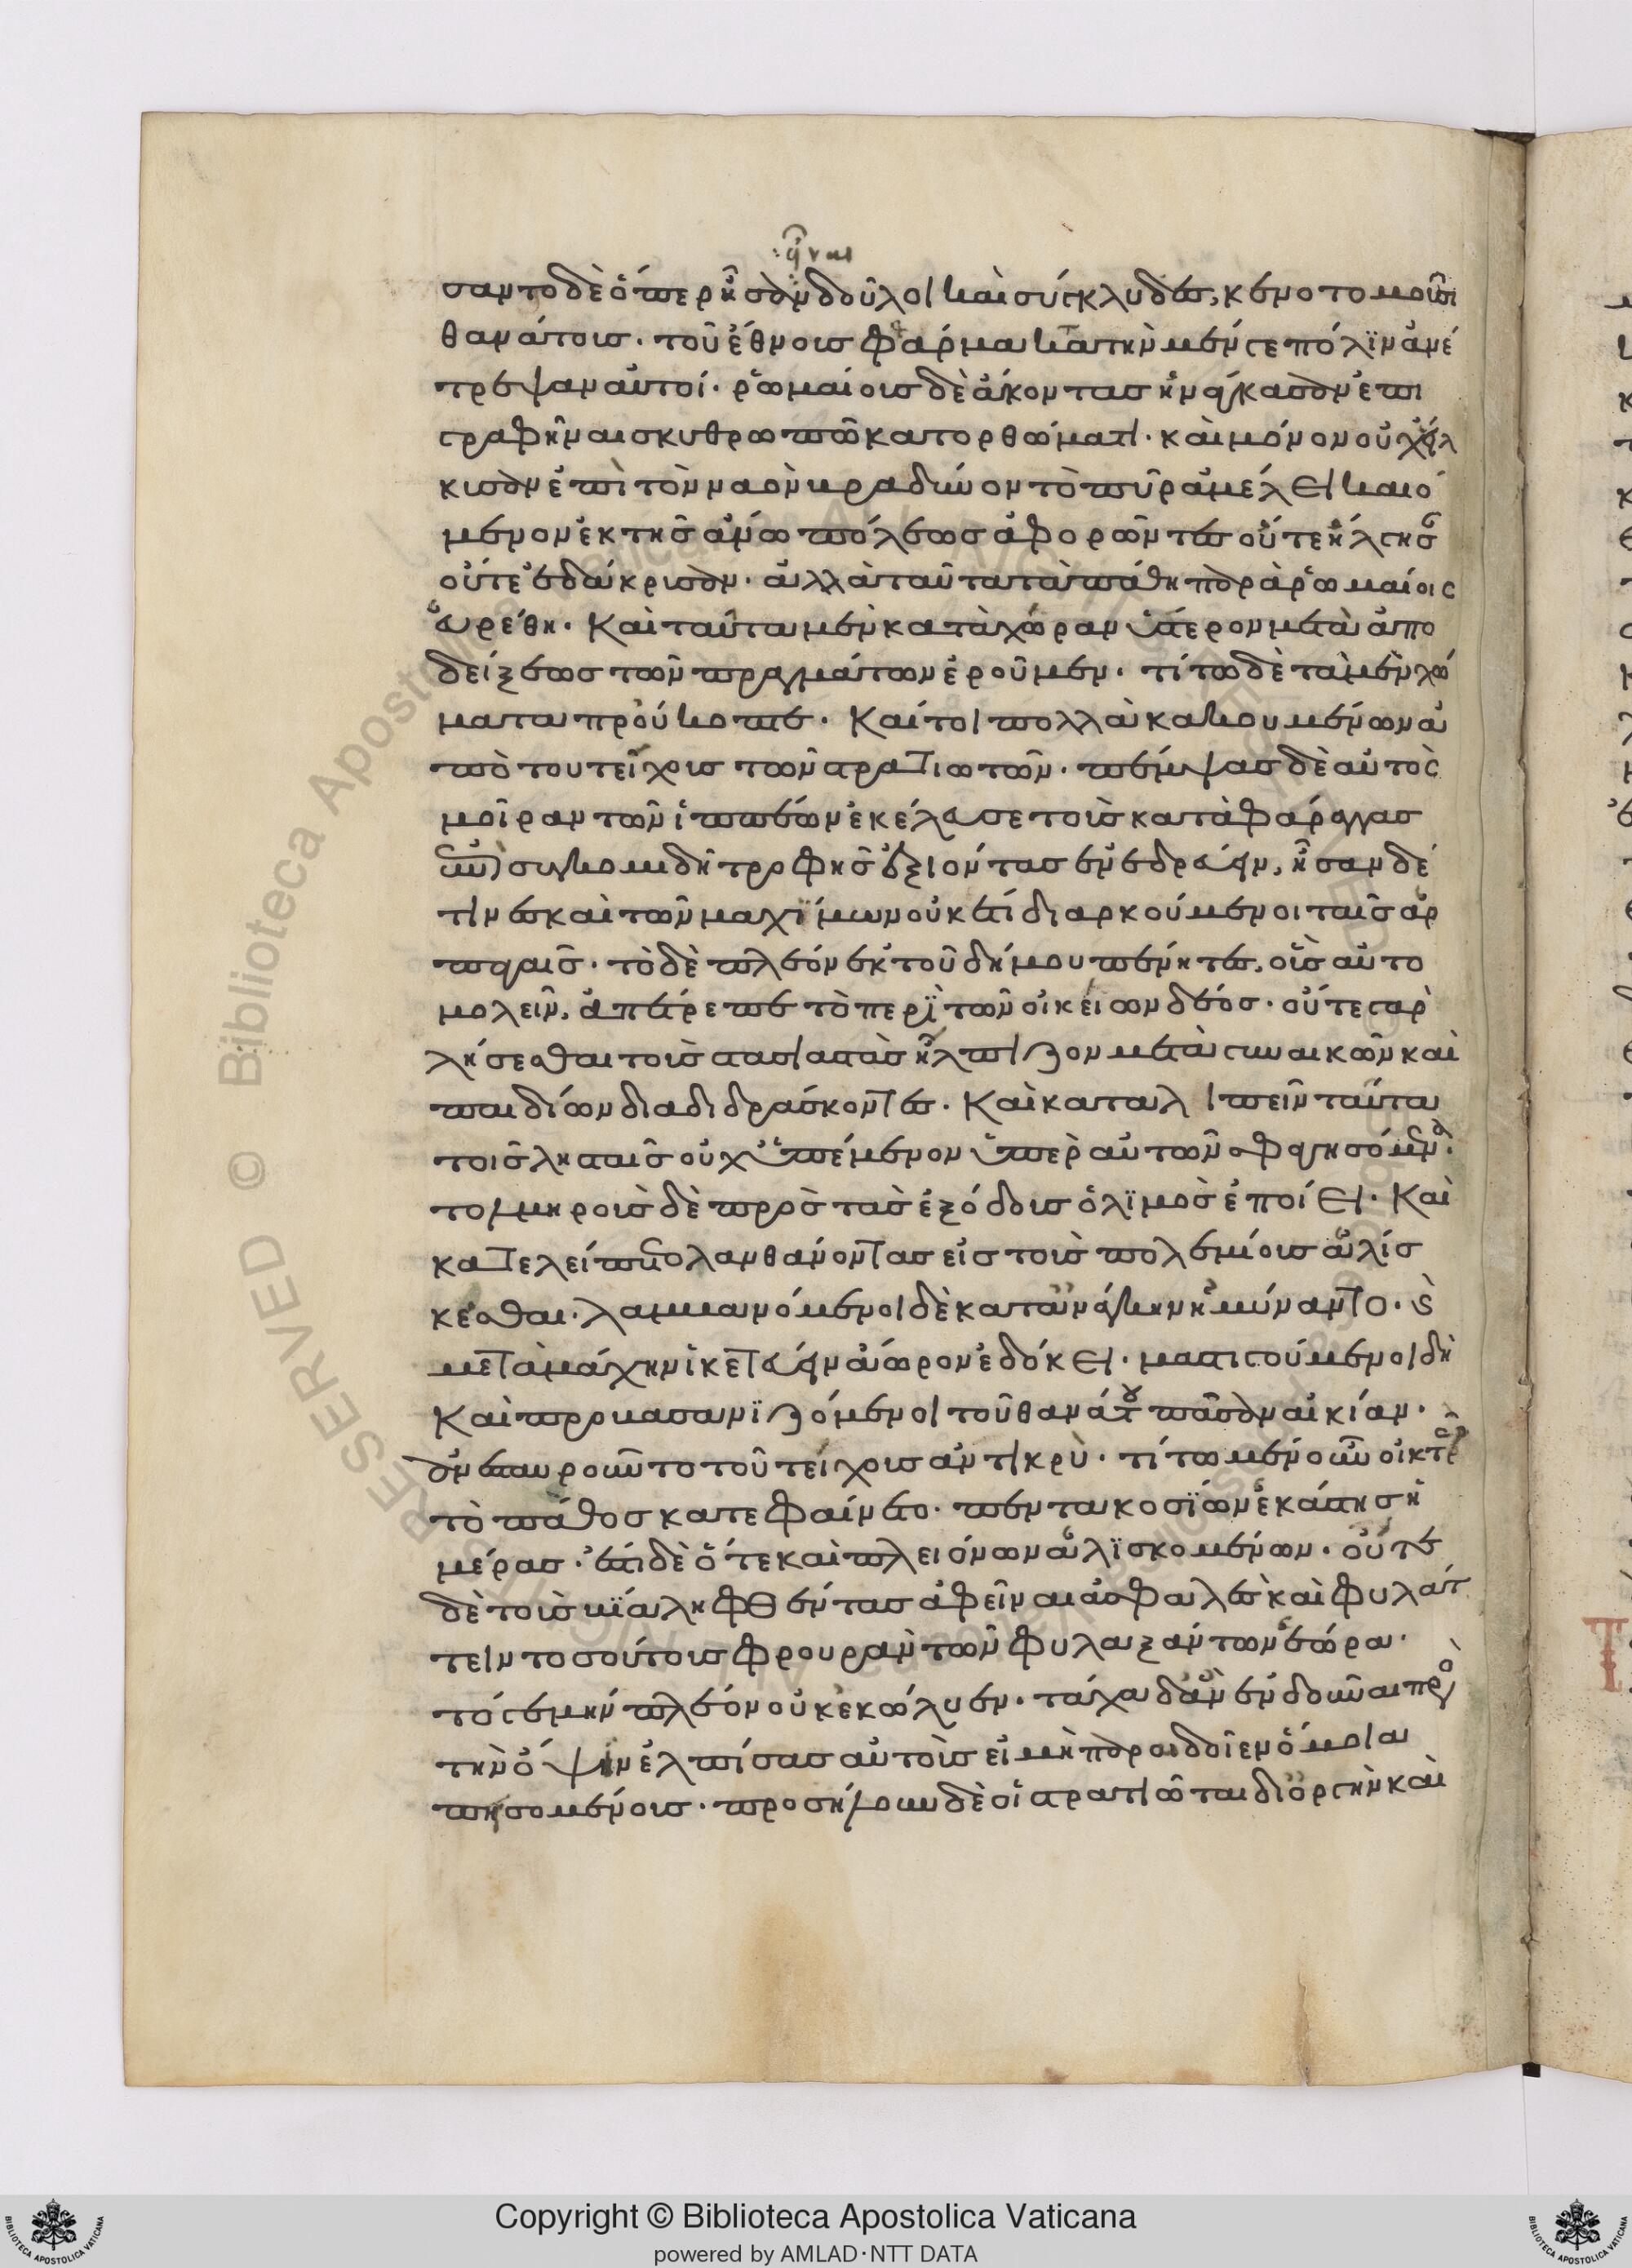 :εἶναι
σαντο δὲ ὅπερ ἦσαν δοῦλοι καὶ σύγκλυδες, κενοτομοῦσι
θανάτοις. τοῦ ἔθνους φθάρματα τὴν μέν γε πόλιν ἀνέ
τρεψαν αὐτοί. ῥωμαίους δὲ ἄκοντας ἠνάγκασαν ἐπι
γραφῆναι σκυθρωπῶ κατορθώματι. καὶ μόνον οὐχ εἵλ
κυσαν ἐπὶ τὸν ναὸν βραδύνον τὸ πῦρ ἀμέλει καιό
μενον ἐκ τῆς ἄνω πόλεως ἀφορῶντες οὔτε ἤλγησ
οὔτε ἐδάκρυσαν. ἀλλὰ ταῦτα τὰ πάθη παρὰ ῥωμαίοις
εὑρέθη. Καὶ ταῦτα μὲν κατὰ χώραν ὕστερον μετὰ ἀπο
δείξεως τῶν πραγμάτων ἐροῦμεν. τίτω δὲ τὰ μὲν χώ
ματα προύκοπτε. Καίτοι πολλὰ κακουμένων ἀ
πὸ του τείχους τῶν στρατιωτῶν. πέμψας δὲ αὐτὸς
μοῖραν τῶν ἱππέων ἐκέλευσε τοὺς κατὰ φάραγγας
ἐπὶ συγκομιδῆ τροφῆς ἐξιόντας ἐνεδρεύειν, ἦσαν δέ
τινες καὶ τῶν μαχίμων οὐκέτι διαρκούμενοι ταῖς ἁρ
παγαῖς. τὸ δὲ πλέον ἐκ τοῦ δήμου πένητες, οἷς αὐτο
μολεῖν, ἀπέτρεπε τὸ περὶ τῶν οἰκείων δέος. οὔτε γὰρ
λήσεσθαι τοὺς στασιαστὰς ἤλπιζον μετὰ γυναικῶν καὶ
παιδίων διαδιδράσκοντες. Καὶ καταλιπεῖν ταῦτα
τοῖς λησταῖς οὐχ ὑπέμενον ὑπὲρ αὐτῶν σφαγησόμενα.
τολμηροὺς δὲ πρὸς τὰς ἐξόδους ὁ λιμὸς ἐποίει. Καὶ
κατελείπετο λανθάνοντας εἰς τοὺς πολεμίους ἁλίσ
κεσθαι. λαμβανόμενοι δὲ κατ' ἀνάγκην ἠμύναντο. καὶ
μετὰ μάχην ἱκετεύειν ἄωρον ἐδόκει. μαστιγούμενοι δὴ
Καὶ προβασανιζόμενοι τοῦ θανάτου πᾶσαν αἰκίαν.
ἀνεσταυροῦντο τοῦ τείχους ἀντικρὺ. τίτω μὲν οὖν οἰκτρὸν
τὸ πάθος κατεφαίνετο. πεντακοσίων ἑκάστης ἡ
μέρας. ἔστι δὲ ὅτε καὶ πλειόνων ἁλισκομένων. οὔτε
δὲ τοὺς βία ληφθέντας ἀφεῖναι ἀσφαλὲς καὶ φυλάτ
τειν τοσούτους φρουρὰν τῶν φυλαξάντων ἑώρα.
τό γε μὴν πλέον οὐκ ἐκώλυεν. τάχα δ' ἂν ἐνδοῦναι πρὸς
τὴν ὄψιν ἐλπίσας αὐτοὺς εἰ μὴ παραδοῖεν ὅμοια
πεισομένους. προσήλουν δὲ οἱ στρατιῶται δι' ὀργὴν καὶ
Copyright © Biblioteca Apostolica Vaticana
powered by AMLAD·NTT DATA